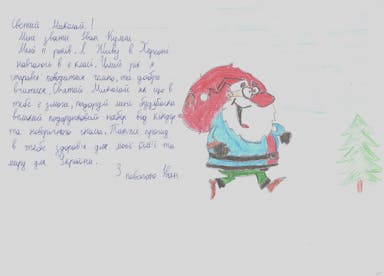 Святий Миколай!
Мене звати Іван
Мені 11 років. Я Живу в Херсоні
навчаюся в 6 класі. Цілий рік я
старався поводитися чемно, та добре
вчитися. Святий Миколай як що в
тебе є змога, подаруй мені будьласка
великий подарунковий набір від кіндер
та
в тебе здоров'я для моєї сім'ї та
миру для України.
З повагою Іван